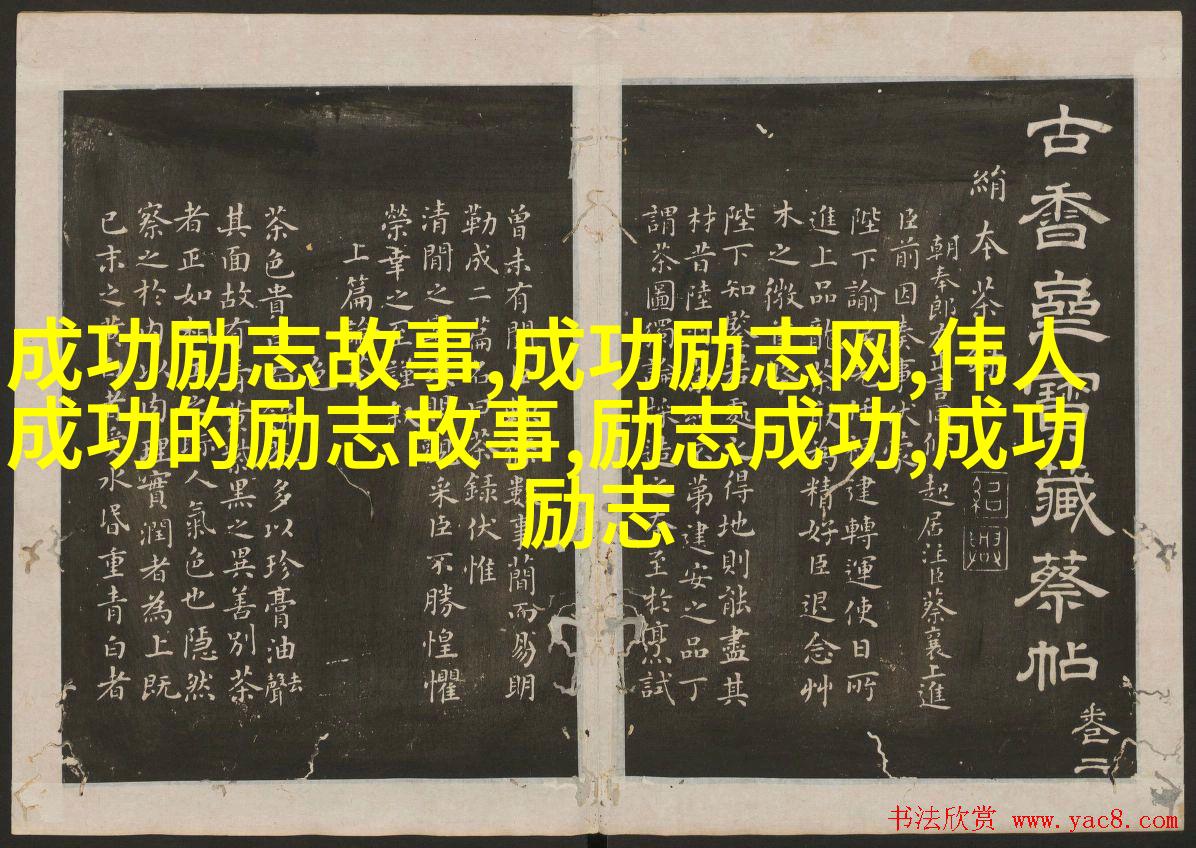 成功励志故事,成功励志网,伟人
成功的励志故事,励志成功,成功
励志
古香齋寶藏蔡帖
卷二
絹本茶
朝奉郎 起居注臣蔡襄上進
臣前因奏事伏
陛下諭 建轉運使日所
進上品龍 精好臣退念艸
木之微
陛下知鑒 處 得地則能盡其
材昔陸 第建安之品丁
謂茶圖獨論 造 至於烹試
曾未有聞 數事簡而易明
勒成二篇名曰 錄伏惟
清閒之 采臣不勝惶懼
榮幸之至謹
上篇
茶色貴 多以珍膏油去聲
其面故有青 黑之異善別茶
者正如相 人氣色也隱然
察之於內 肉理實潤者為上既
已末之黃 水昏重青白者
书法欣赏 www.yac8.com